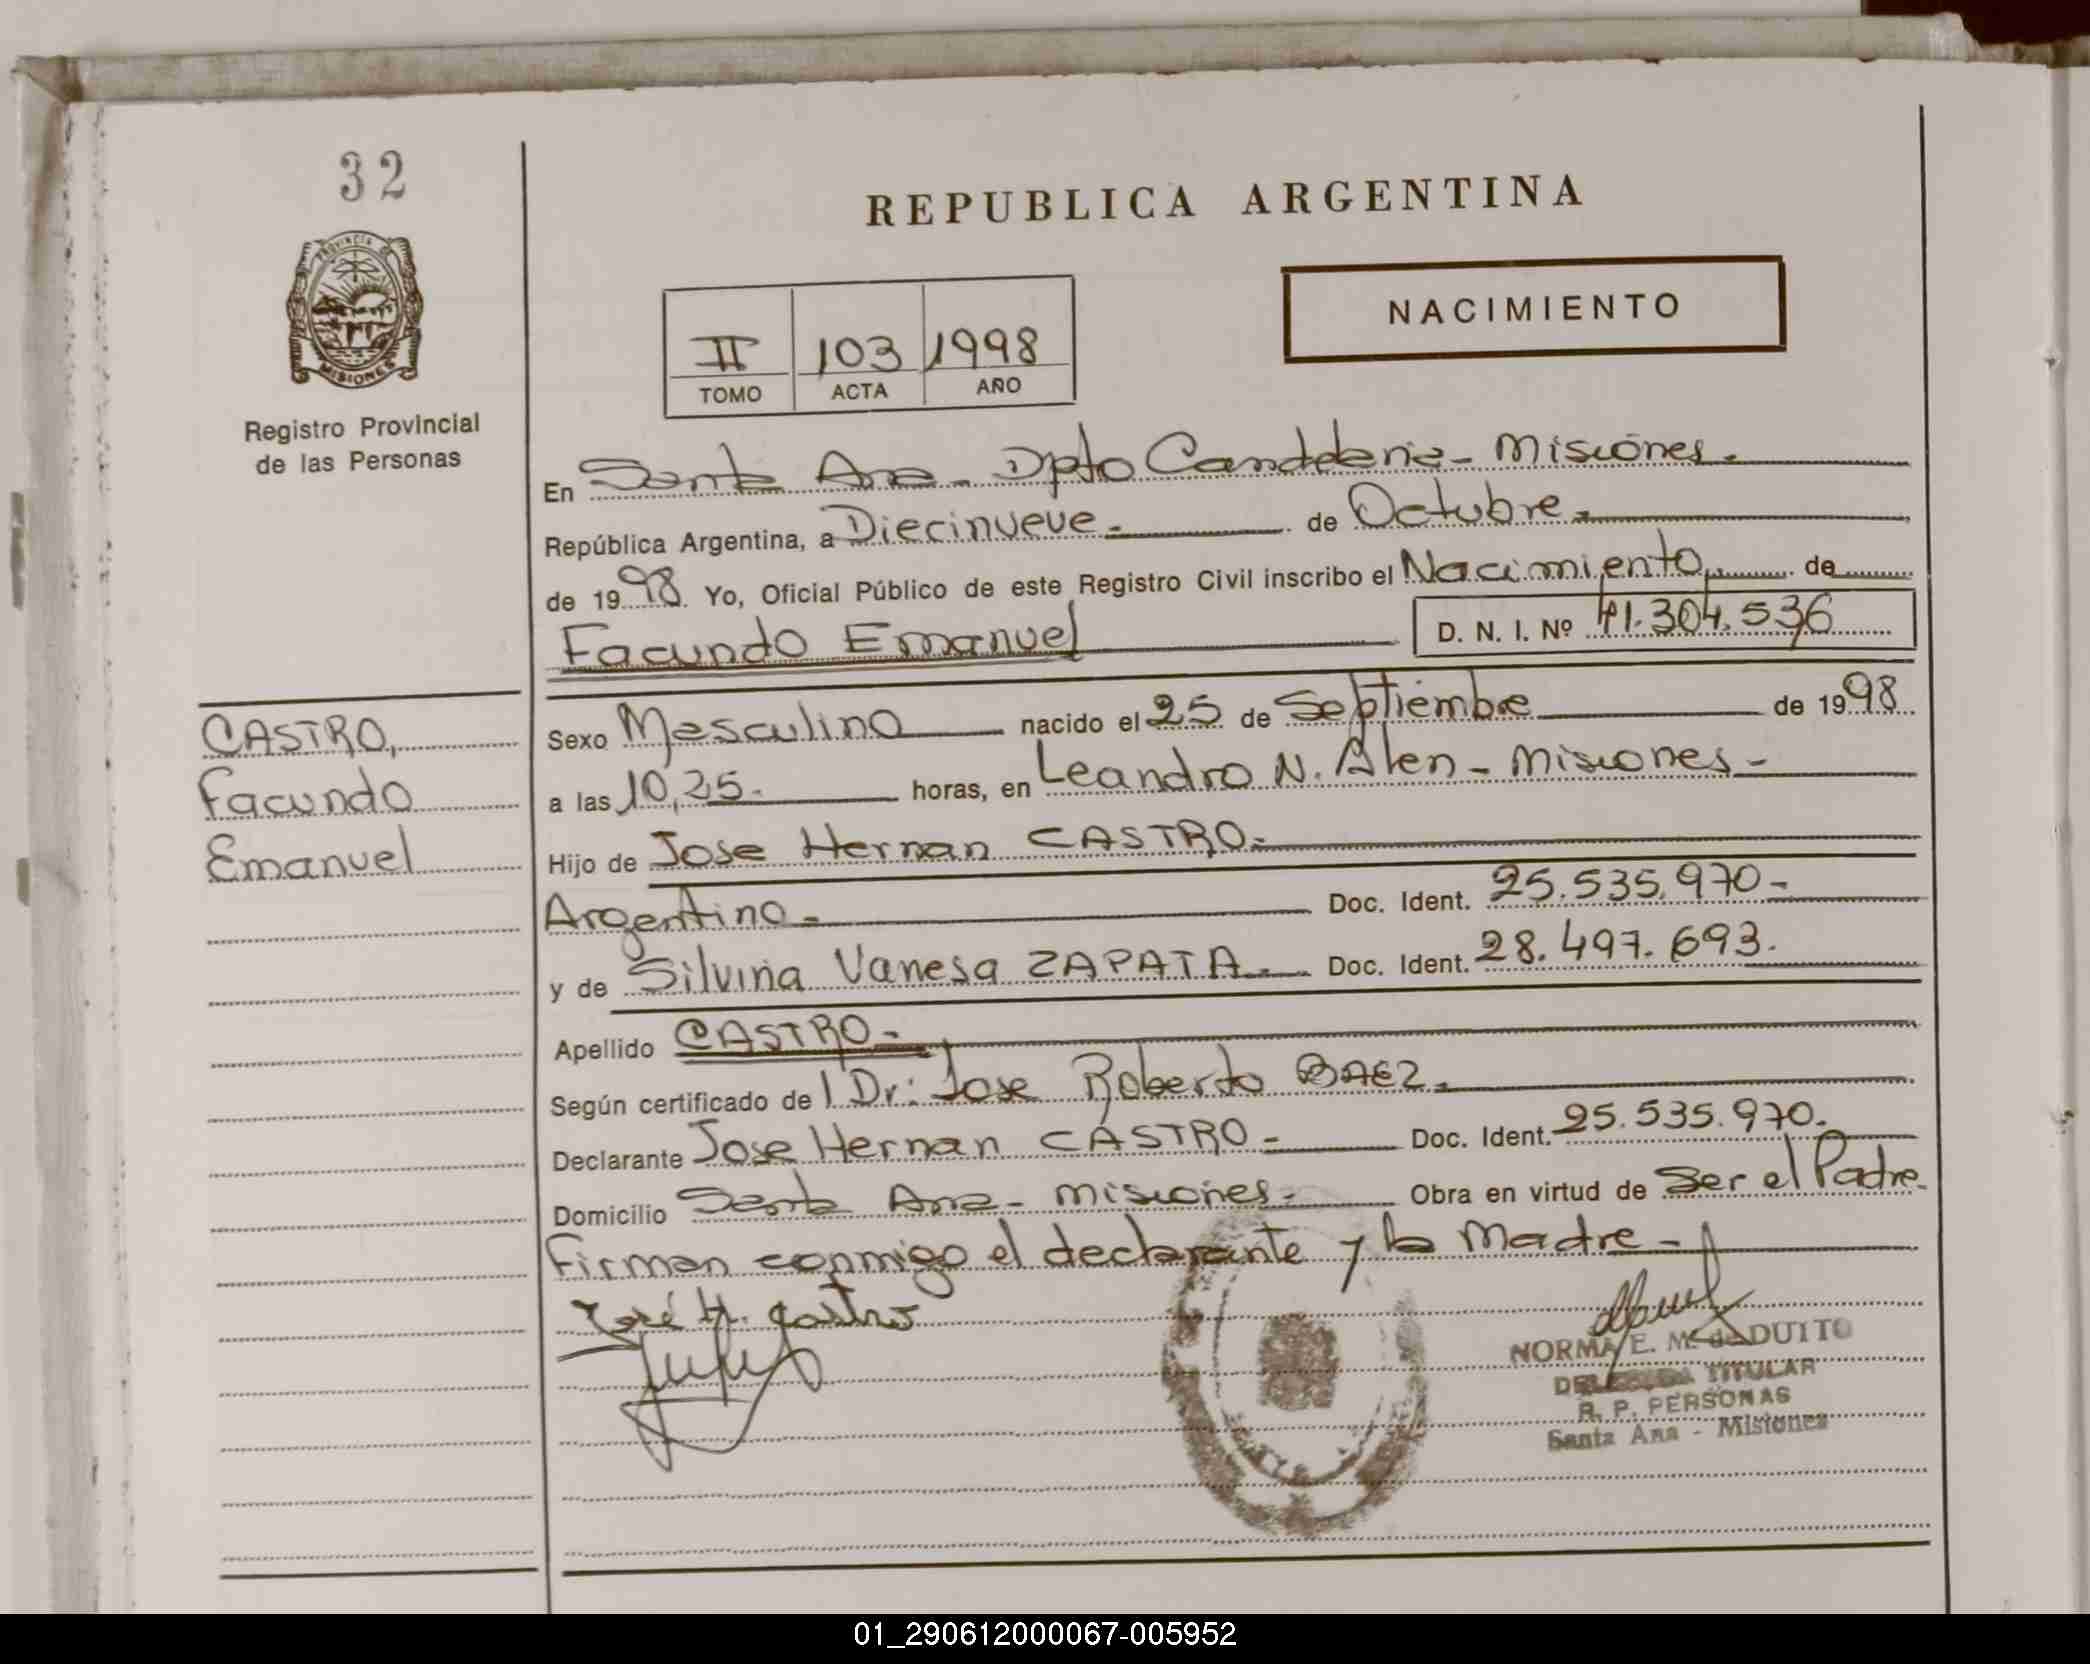 32
REPUBLICA ARGENTINA
PROVINCIA DE
MISIONES
NACIMIENTO
II 103 1998
TOMO ACTA AÑO
Registro Provincial
de las Personas
En Santa Ana - Dpto Candelaria - Misiones.
República Argentina, a Diecinueve - de Octubre -
de 1998 Yo, Oficial Público de este Registro Civil inscribo el Nacimiento de
Facundo Emanuel D. N. I. Nº 41.304.536
CASTRO,
Facundo
Emanuel
Sexo Masculino nacido el 25 de Septiembre de 1998
a las 10,25- horas, en Leandro N. Alen - Misiones -
Hijo de Jose Hernan CASTRO-
Argentino - Doc. Ident. 25.535.970-
y de Silvina Vanesa ZAPATA - Doc. Ident. 28.497.693.
Apellido CASTRO -
Según certificado del Dr: Jose Roberto BAEZ -
Declarante Jose Hernan CASTRO - Doc. Ident. 25.535.970.
Domicilio Santa Ana - Misiones - Obra en virtud de Ser el Padre.
Firman conmigo el declarante y la Madre -
José H. Castro
NORMA E. M. de DUITO
DELEGADA TITULAR
R. P. PERSONAS
Santa Ana - Misiones
01_290612000067-005952